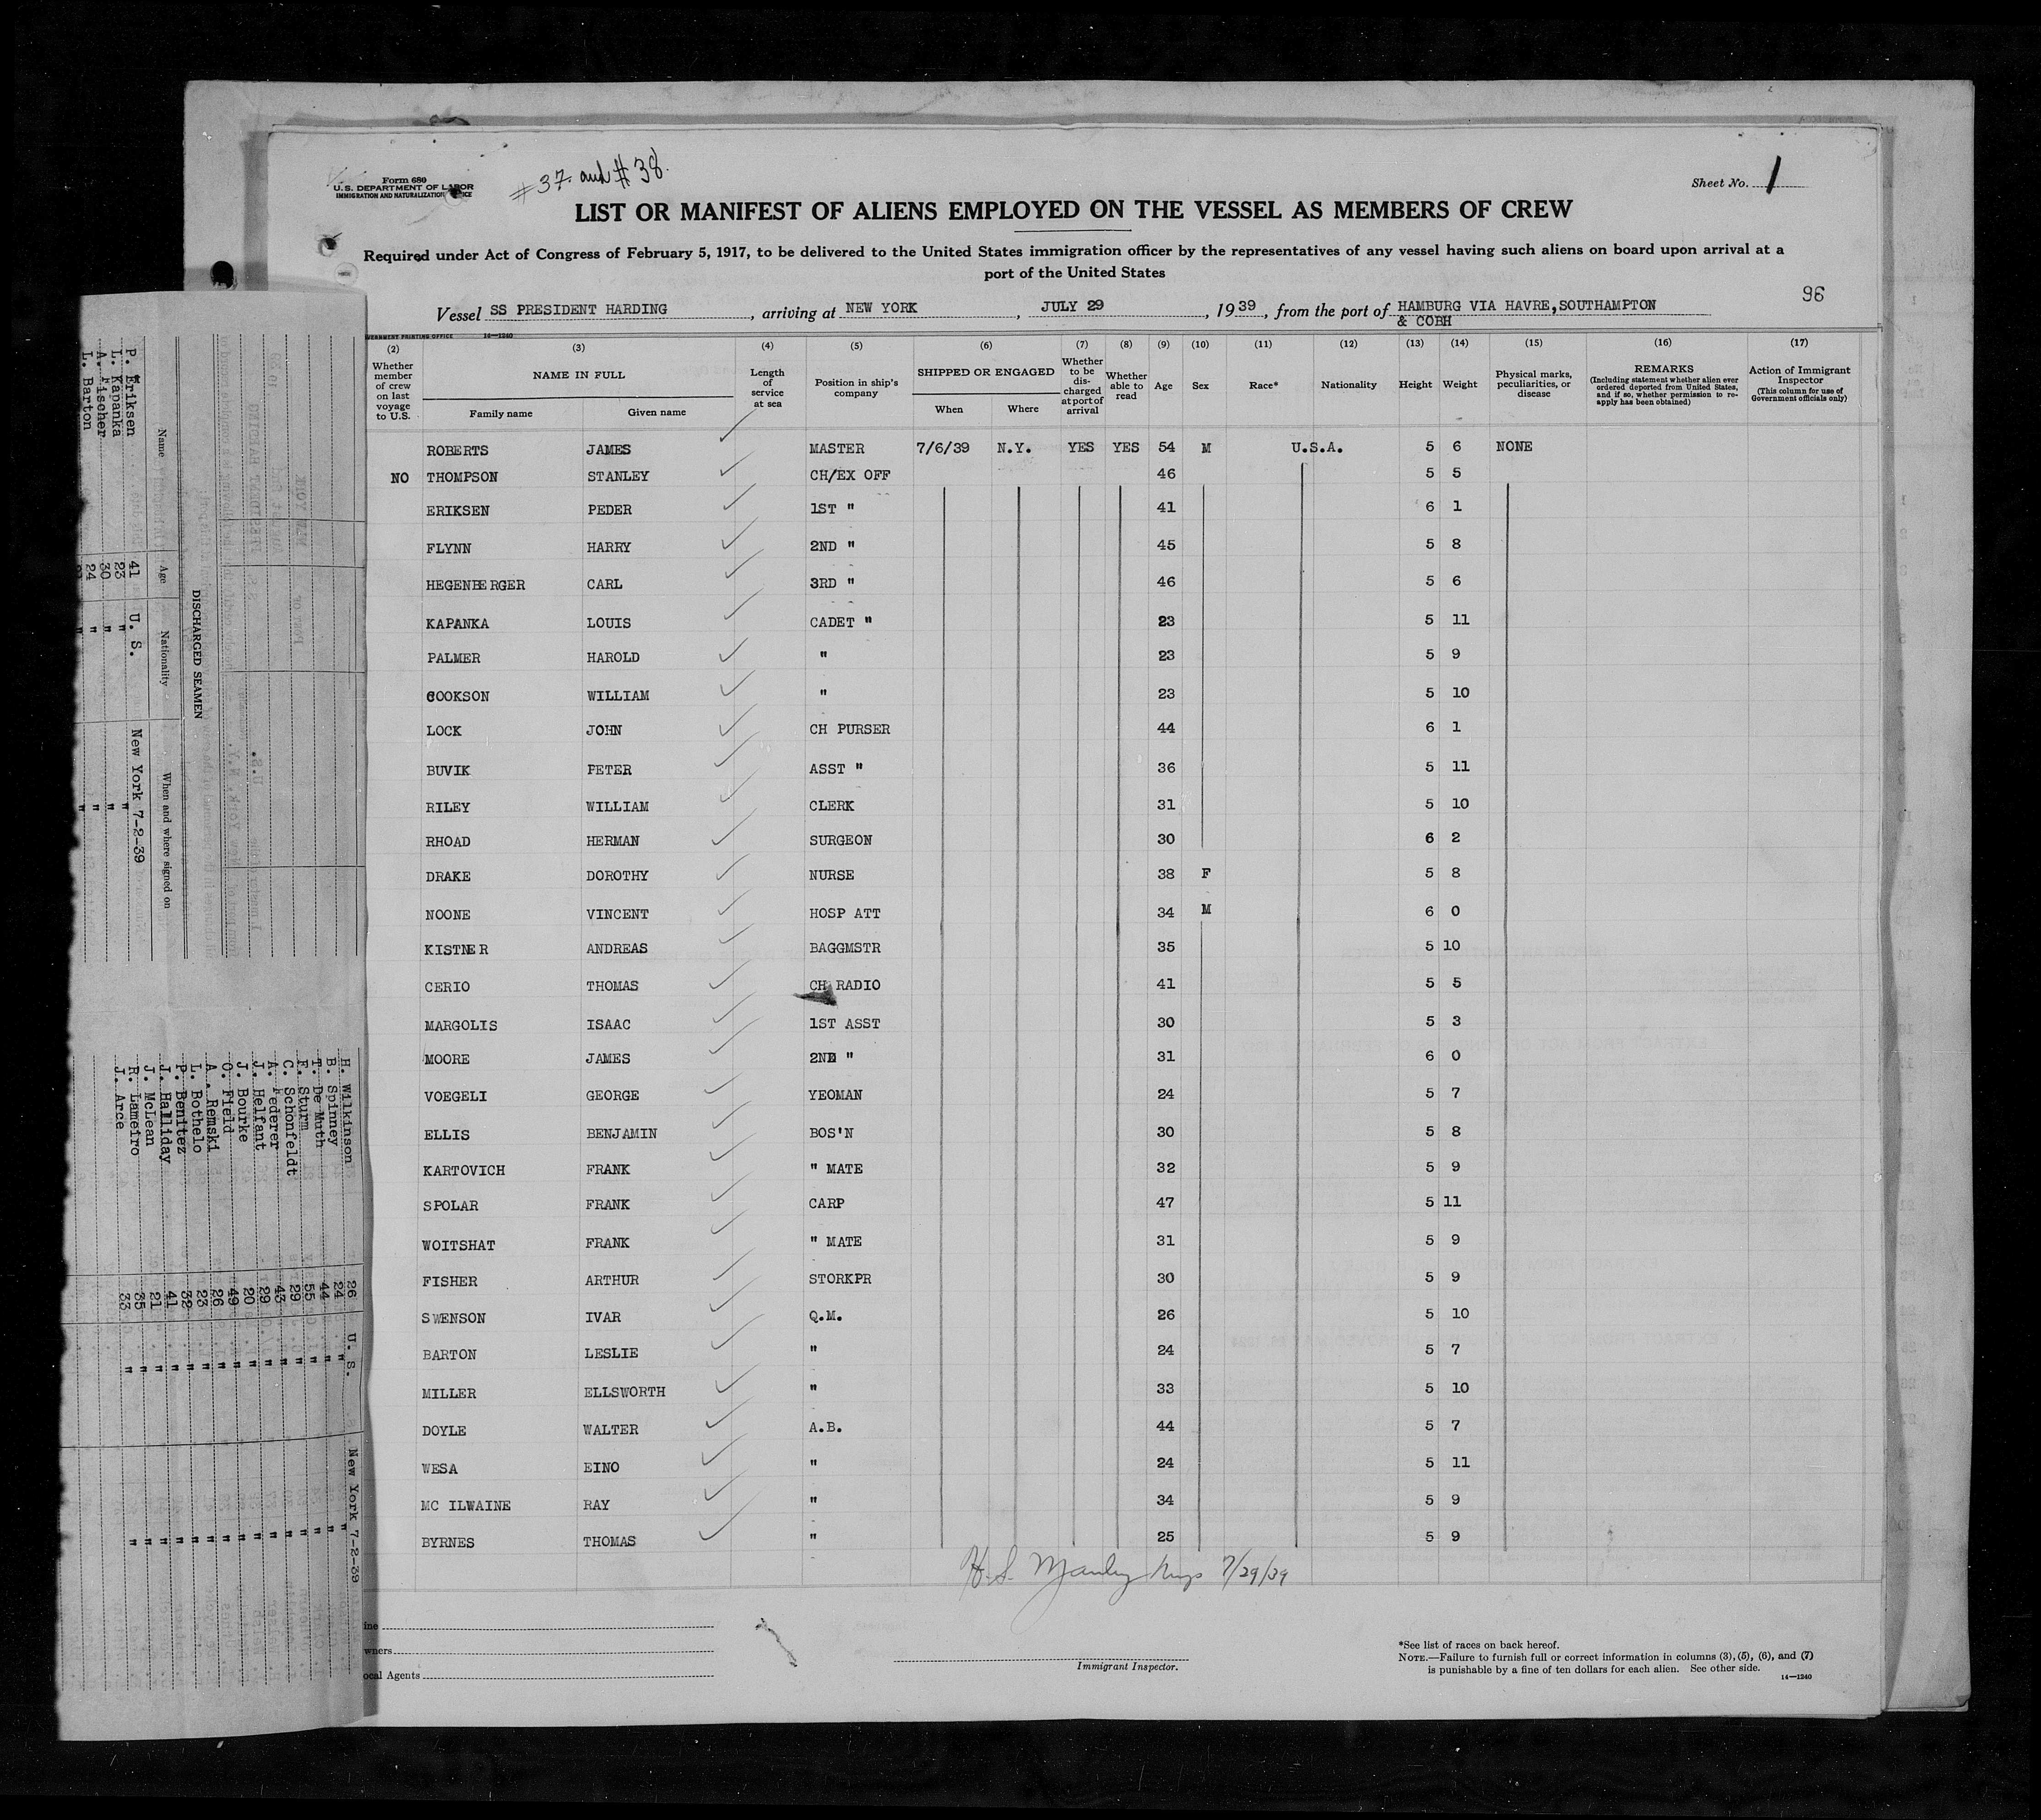 Form 680
U.S. DEPARTMENT OF LABOR
IMMIGRATION AND NATURALIZATION
#37 and #38.
Sheet No. 1
LIST OR MANIFEST OF ALIENS EMPLOYED ON THE VESSEL AS MEMBERS OF CREW
Required under Act of Congress of February 5, 1917, to be delivered to the United States immigration officer by the representatives of any vessel having such aliens on board upon arrival at a
port of the United States
96
Vessel SS PRESIDENT HARDING, arriving at NEW YORK, JULY 29, 1939, from the port of HAMBURG VIA HAVRE,SOUTHAMPTON
& COBH
14—1240
(2) (3) (4) (5) (6) (7) (8) (9) (10) (11) (12) (13) (14) (15) (16) (17)
Whether member of crew on last voyage to U.S.
NAME IN FULL
Family name Given name
Length of service at sea
Position in ship's company
SHIPPED OR ENGAGED
When Where
Whether to be discharged at port of arrival
Whether able to read
Age
Sex
Race*
Nationality
Height
Weight
Physical marks, peculiarities, or disease
REMARKS
(Including statement whether alien ever ordered deported from United States, and if so, whether permission to reapply has been obtained)
Action of Immigrant Inspector
(This column for use of Government officials only)
ROBERTS JAMES MASTER 7/6/39 N.Y. YES YES 54 M U.S.A. 5 6 NONE
NO THOMPSON STANLEY CH/EX OFF 46 5 5
ERIKSEN PEDER 1ST " 41 6 1
FLYNN HARRY 2ND " 45 5 8
HEGENBERGER CARL 3RD " 46 5 6
KAPANKA LOUIS CADET " 23 5 11
PALMER HAROLD " 23 5 9
COOKSON WILLIAM " 23 5 10
LOCK JOHN CH PURSER 44 6 1
BUVIK PETER ASST " 36 5 11
RILEY WILLIAM CLERK 31 5 10
RHOAD HERMAN SURGEON 30 6 2
DRAKE DOROTHY NURSE 38 F 5 8
NOONE VINCENT HOSP ATT 34 M 6 0
KISTNER ANDREAS BAGGMSTR 35 5 10
CERIO THOMAS CH RADIO 41 5 5
MARGOLIS ISAAC 1ST ASST 30 5 3
MOORE JAMES 2ND " 31 6 0
VOEGELI GEORGE YEOMAN 24 5 7
ELLIS BENJAMIN BOS'N 30 5 8
KARTOVICH FRANK " MATE 32 5 9
SPOLAR FRANK CARP 47 5 11
WOITSHAT FRANK " MATE 31 5 9
FISHER ARTHUR STORKPR 30 5 9
SWENSON IVAR Q.M. 26 5 10
BARTON LESLIE " 24 5 7
MILLER ELLSWORTH " 33 5 10
DOYLE WALTER A.B. 44 5 7
WESA EINO " 24 5 11
MC ILWAINE RAY " 34 5 9
BYRNES THOMAS " 25 5 9
H.S. Manley Insp 7/29/39
Immigrant Inspector.
ocal Agents
*See list of races on back hereof.
NOTE.—Failure to furnish full or correct information in columns (3), (5), (6), and (7)
is punishable by a fine of ten dollars for each alien. See other side.
14—1240
DISCHARGED SEAMEN
Name Age Nationality When and where signed on
P. Eriksen 41 U. S. New York 7-2-39
L. Kapanka 23 " "
A. Fischer 30 " "
L. Barton 24 " "
H. Wilkinson 26 U. S. New York 7-2-39
B. Spinney 24 " "
T. De Muth 44 " "
F. Sturm 55 " "
C. Schonfeldt 29 " "
A. Federer 43 " "
J. Helfant 29 " "
J. Bourke 20 " "
O. Field 49 " "
A. Remski 26 " "
L. Bothelo 23 " "
P. Benitez 32 " "
J. Halliday 41 " "
J. McLean 21 " "
R. Lameiro 35 " "
J. Arce 33 " "